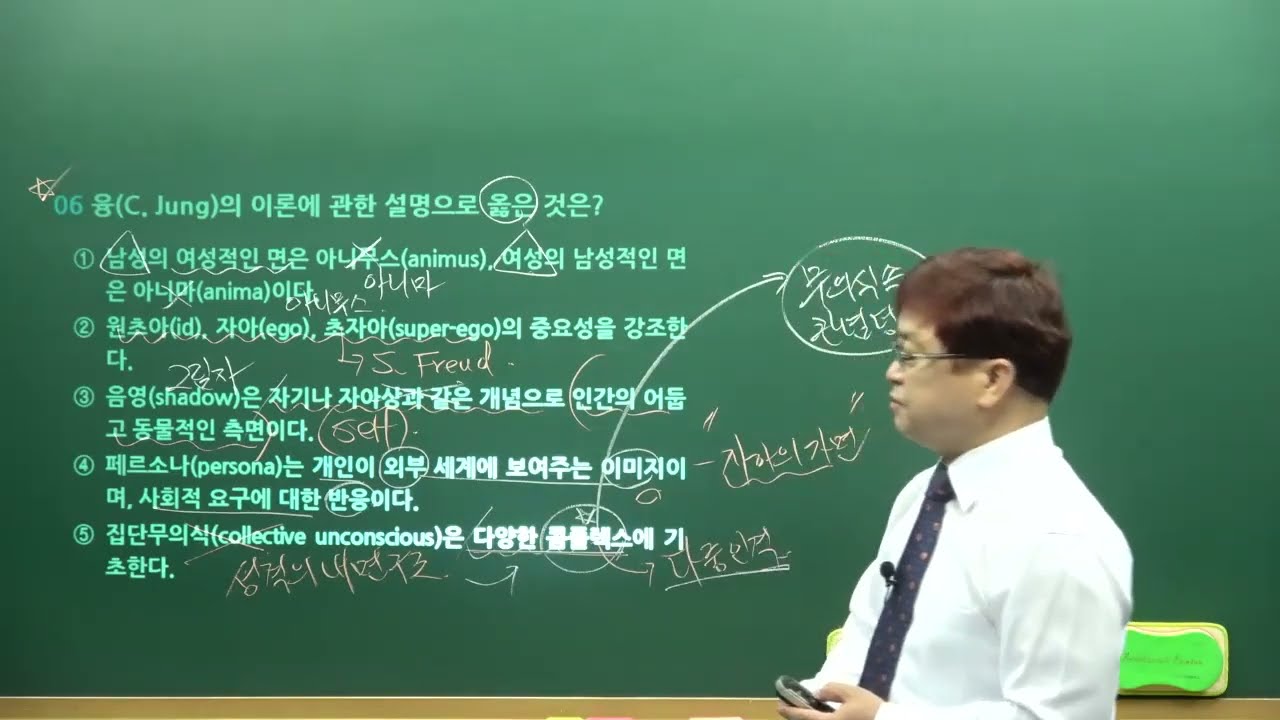 06 융(C. Jung)의 이론에 관한 설명으로 옳은 것은?
① 남성의 여성적인 면은 아니무스(animus), 여성의 남성적인 면
은 아니마(anima)이다.
아니무스 아니마
② 원초아(id), 자아(ego), 초자아(super-ego)의 중요성을 강조한
다.
S. Freud.
그림자
③ 음영(shadow)은 자기나 자아상과 같은 개념으로 인간의 어둡
고 동물적인 측면이다.
(self).
④ 페르소나(persona)는 개인이 외부 세계에 보여주는 이미지이
며, 사회적 요구에 대한 반응이다.
"자아의 가면"
⑤ 집단무의식(collective unconscious)은 다양한 콤플렉스에 기
초한다.
다중인격
무의식속